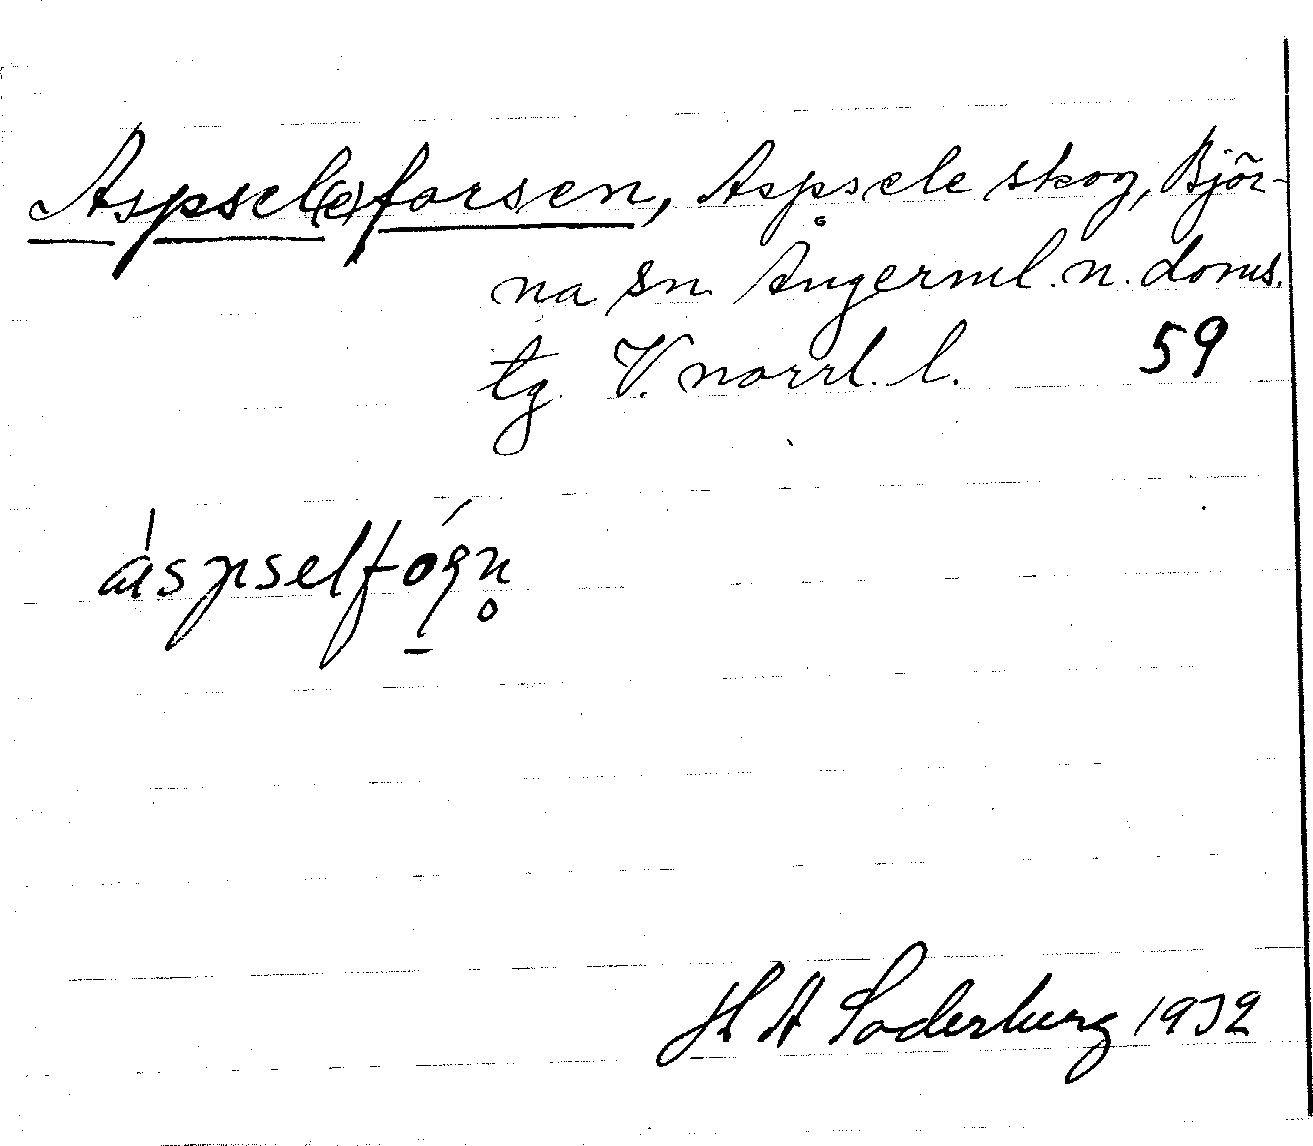 Aspsel(e)forsen, Aspsele skog, Björ-
na sn. Ångerml. n. doms.
tg. V. norrl. l. 59
áspselfóʂn̥
H A Söderberg 1932